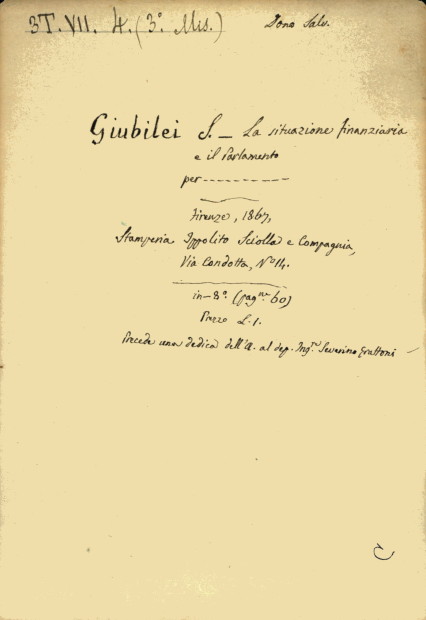 3T. VII. 4. (3° Mis.) Dono Salv.
Giubilei S. — La situazione finanziaria
e il Parlamento
per ----------
Firenze, 1867,
Stamperia Ippolito Sciolla e Compagnia,
Via Condotta, N° 14.
in-8°. (pag.ne 60)
Prezzo L. 1.
Precede una dedica dell'A. al dep. Ing.re Severino Grattoni —